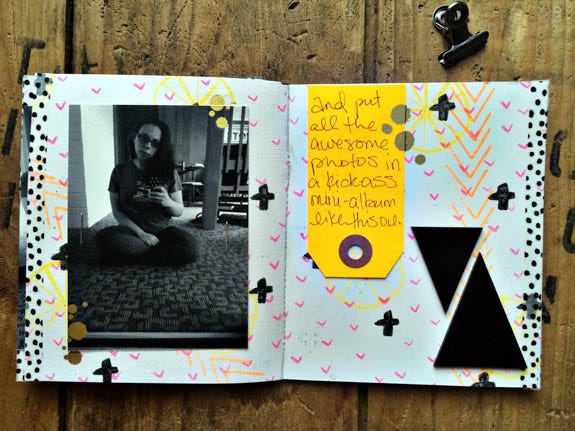 and put
all the
awesome
photos in
a kickass
mini-album
like this one.